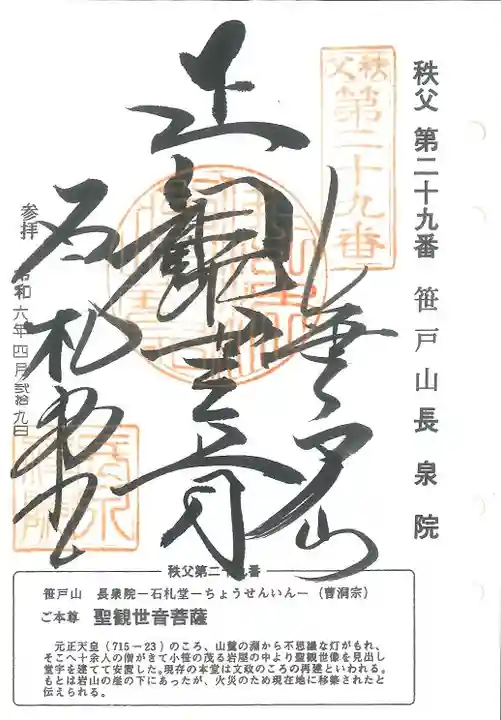 秩父 第二十九番 笹戸山長泉院
秩父
第二十九番
正観世音
石札堂
参拝 令和六年四月弐拾九日
秩父第二十九番
笹戸山 長泉院ー石札堂ーちょうせんいんー（曹洞宗）
ご本尊 聖観世音菩薩
元正天皇（715－23）のころ、山麓の淵から不思議な灯がもれ、
そこへ十余人の僧がきて小笹の茂る岩屋の中より聖観世像を見出し
堂宇を建てて安置した。現存の本堂は文政のころの再建といわれる。
もとは岩山の崖の下にあったが、火災のため現在地に移築されたと
伝えられる。